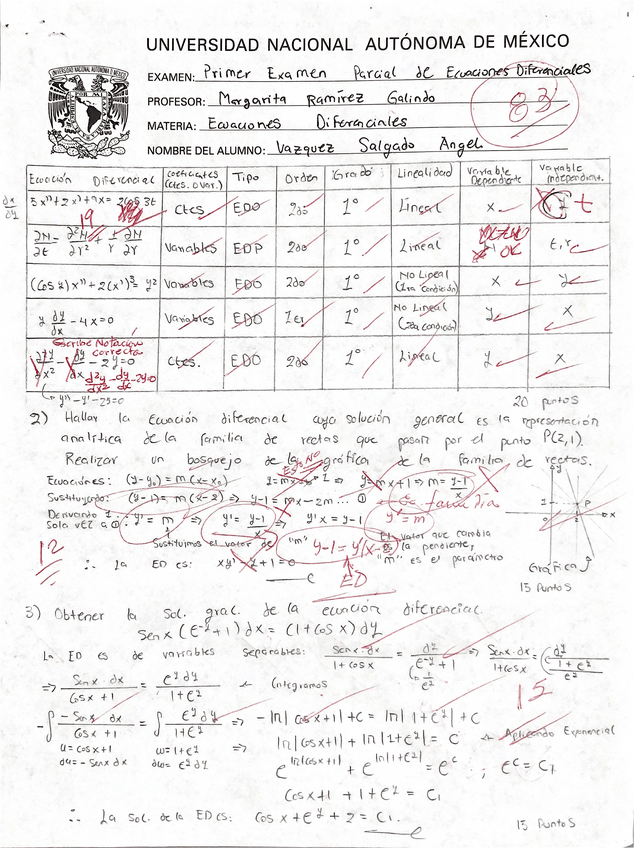 UNIVERSIDAD NACIONAL AUTÓNOMA DE MÉXICO
EXAMEN: Primer Examen Parcial de Ecuaciones Diferenciales
PROFESOR: Margarita Ramírez Galindo
83
MATERIA: Ecuaciones Diferenciales
NOMBRE DEL ALUMNO: Vazquez Salgado Angel
Ecuación Diferencial Coeficientes (Ctes. o Var.) Tipo Orden Grado Linealidad Variable Dependiente Variable Independient.
dx/dy
5x''+2x'+9x=2cos3t Ctes EDO 2do 1° Lineal x t
19
∂N/∂t = ∂²N/∂r² + 1/r ∂N/∂r Variables EDP 2do 1° Lineal OK t,r
(Cos x)x''+2(x')³=y² Variables EDO 2do 1° No Lineal (1ra condición) x y
y dy/dx -4x=0 Variables EDO 1er 1° No Lineal (2da condición) y x
Escribe Notación correcta
d²y/dx² - dy/dx - 2y=0 Ctes. EDO 2do 1° Lineal y x
y''-y'-2y=0
20 puntos
2) Hallar la Ecuación diferencial cuya solución general es la representación
analítica de la familia de rectas que pasan por el punto P(2,1).
Realizar un bosquejo de la gráfica de la familia de rectas.
Esto NO
Ecuaciones: (y-y₀)=m(x-x₀) y=mx+1 ⇒ m=y-1/x
Sustituyendo: (y-1)=m(x-2) ⇒ y-1=mx-2m...① familia
Derivando 1 sola vez a ①: y'=m ⇒ y'=y-1/x ⇒ y'x=y-1 y'=m
Sustituimos el valor de "m" y-1=y'(x-2)
El valor que cambia
la pendiente,
"m" es el parámetro
12
∴ La ED es: xy'-y+1=0
ED
Gráfica
15 puntos
3) Obtener la sol. gral. de la ecuación diferencial.
Sen x (e^-y+1)dx = (1+cos x)dy
La ED es de variables separables: Senx·dx/1+cosx = dy/e^-y+1 ⇒ Senx·dx/1+cosx = dy/(1+e^y/e^y)
⇒ Senx·dx/Cosx+1 = e^y dy/1+e^y ← Integramos
15
-∫ -Senx dx/Cosx+1 = ∫ e^y dy/1+e^y ⇒ -ln|cosx+1|+C = ln|1+e^y|+C
u=cosx+1 w=1+e^y ⇒ ln|cosx+1|+ln|1+e^y|=C ← Aplicando Exponencial
du=-senx dx dw=e^y dy
e^ln|cosx+1| + e^ln|1+e^y| = e^c ; e^c=C₁
Cosx+1+1+e^y=C₁
∴ La sol. de la ED es: cosx+e^y+2=C₁.
15 Puntos